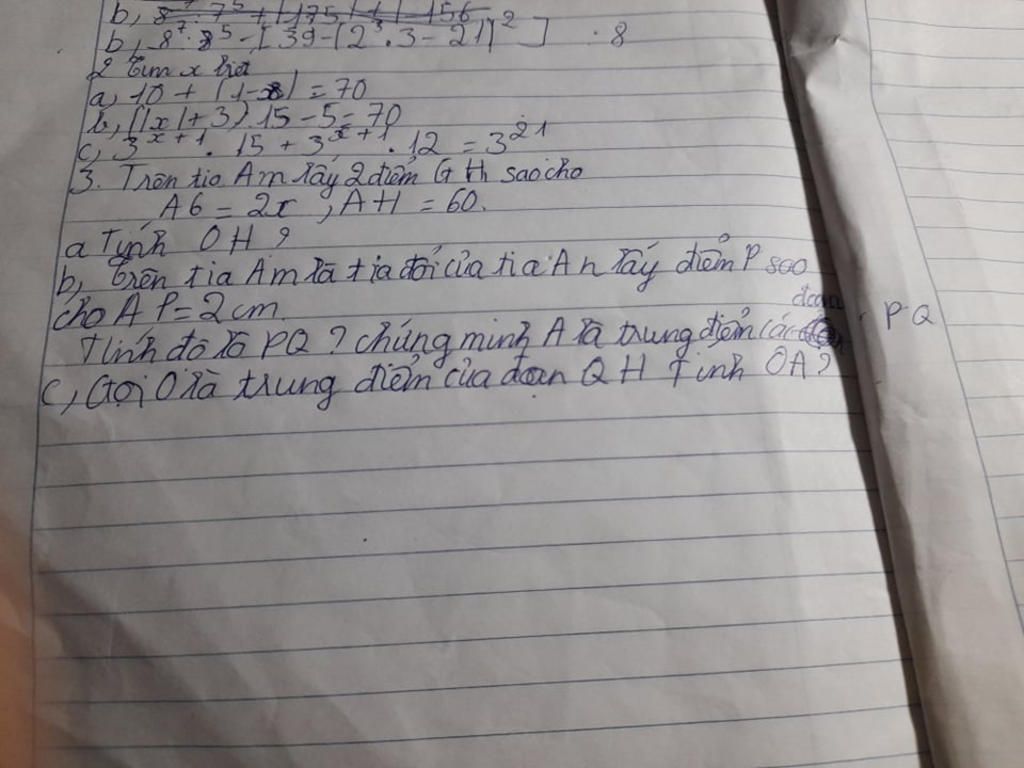 b, 8⁷ 7⁵ + |175| + |-156
b, 8⁷ . 8⁵ - [39 - (2³ . 3 - 21)²] . 8
2 tìm x biết
a, 10 + |1-x| = 70
b, (|x| + 3) . 15 - 5 = 70
c, 3ˣ⁺¹ . 15 + 3ˣ⁺¹ . 12 = 3²¹
3. Trên tia Am lấy 2 điểm G H sao cho
AG = 2x , AH = 60.
a Tính OH ?
b, Trên tia Am là tia đối của tia An lấy điểm P sao
cho AP = 2 cm.
Tính độ là PQ ? chứng minh A là trung điểm các đoạn P Q
c, Gọi O là trung điểm của đoạn QH Tính OA ?